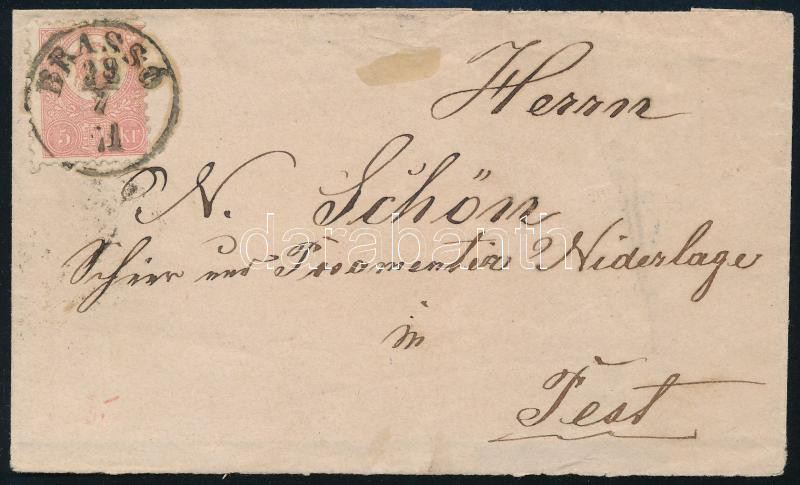 BRASSÓ
28
7
71
5 KR
Herrn
N. Schön
Schirr und Posamentir Niderlage
in
Pest
darabanth